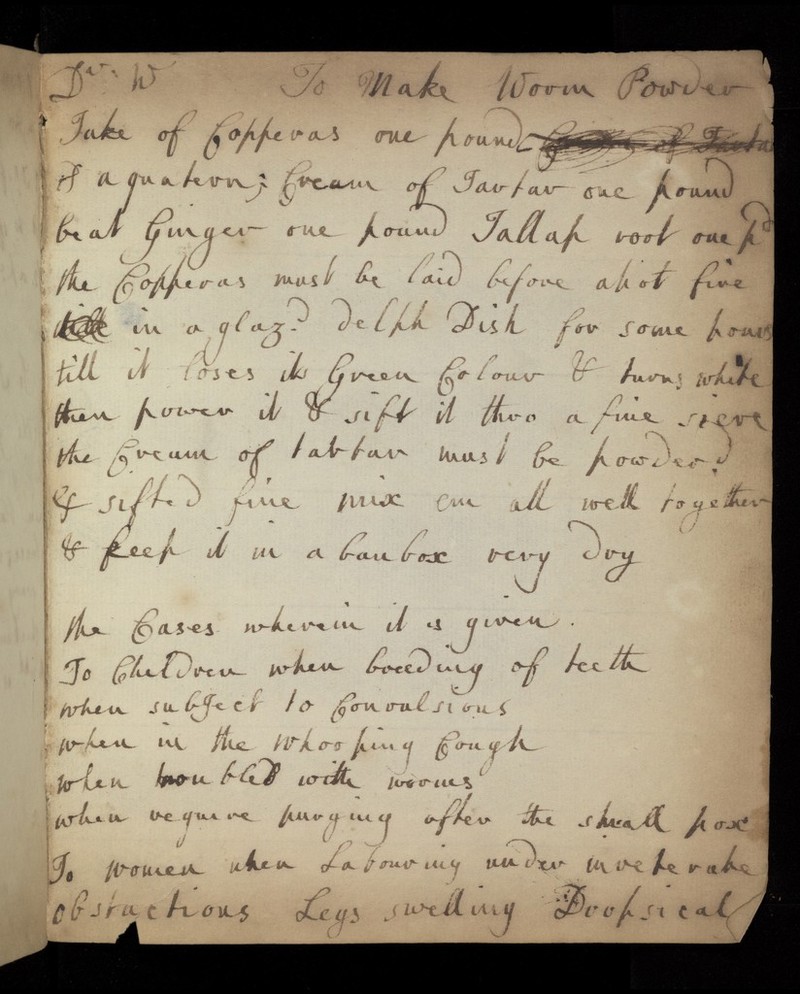 Dr. W To Make Worm Powder
Take of Copperas one pound
& a quatern; Cream of Tartar one pound
beat Ginger one pound Jallap root one pd
the Copperas must be laid before ahot fire
in a glaz.d delph Dish for some hours
till it loses its Green Colour & turns white
then power it & sift it thro a fine sieve
the Cream of tartar must be powder.d
& sifted fine mix em all well together
& keep it in a banbox very dry
the Cases wherein it is given.
To Children when breeding of teeth
when subject to Convulsions
when in the whooping Cough
when troubled with worms
when require purging after the small pox
To women when Labouring under inveterate
obstuctions Legs swelling Dropsical